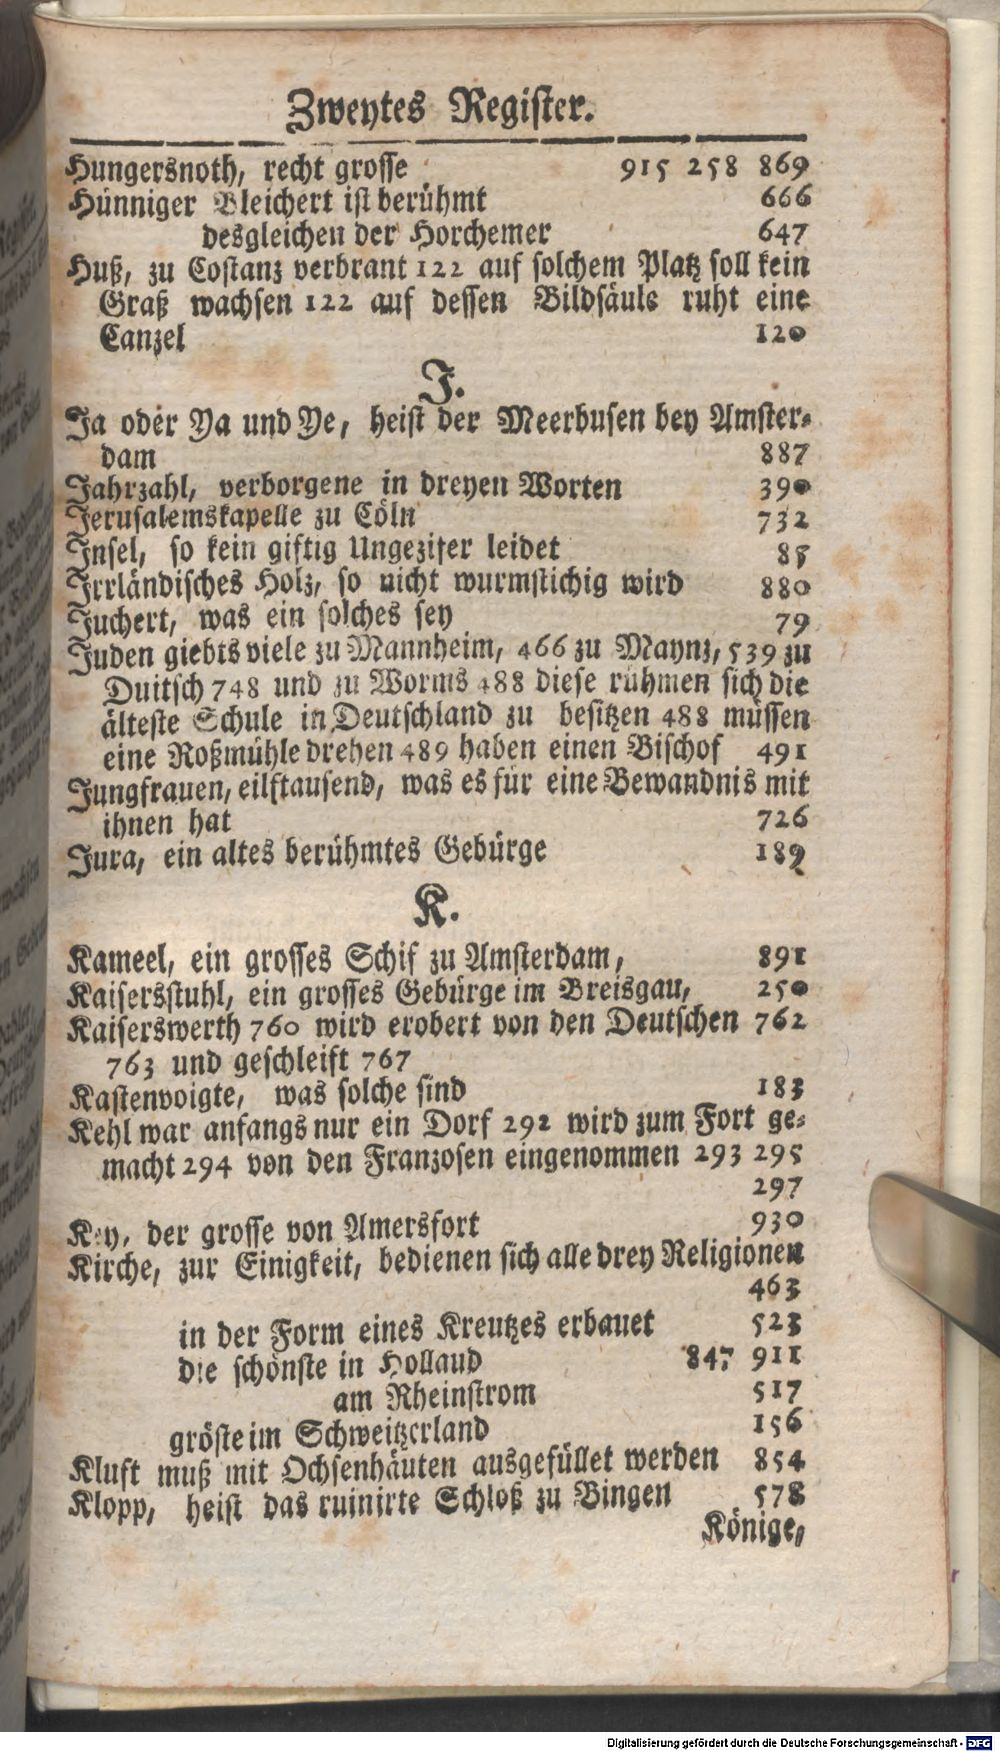 Zweytes Register.
Hungersnoth, recht grosse 915 258 869
Hünniger Bleichert ist berühmt 666
desgleichen der Horchemer 647
Huß, zu Costanz verbrant 122 auf solchem Platz soll kein
Graß wachsen 122 auf dessen Bildsäule ruht eine
Canzel 120
J.
Ja oder Ya und Ye, heist der Meerbusen bey Amster-
dam 887
Jahrzahl, verborgene in dreyen Worten 390
Jerusalemskapelle zu Cöln 732
Insel, so kein giftig Ungezifer leidet 85
Irrländisches Holz, so nicht wurmstichig wird 880
Juchert, was ein solches sey 79
Juden giebts viele zu Mannheim, 466 zu Maynz, 539 zu
Duitsch 748 und zu Worms 488 diese rühmen sich die
älteste Schule in Deutschland zu besitzen 488 müssen
eine Roßmühle drehen 489 haben einen Bischof 491
Jungfrauen, eilftausend, was es für eine Bewandnis mit
ihnen hat 726
Jura, ein altes berühmtes Gebürge 189
K.
Kameel, ein grosses Schif zu Amsterdam, 891
Kaisersstuhl, ein grosses Gebürge im Breisgau, 250
Kaiserswerth 760 wird erobert von den Deutschen 762
763 und geschleift 767
Kastenvoigte, was solche sind 183
Kehl war anfangs nur ein Dorf 292 wird zum Fort ge-
macht 294 von den Franzosen eingenommen 293 295
297
Key, der grosse von Amersfort 930
Kirche, zur Einigkeit, bedienen sich alle drey Religionen
463
in der Form eines Kreutzes erbauet 523
die schönste in Holland 847 911
am Rheinstrom 517
gröste im Schweitzerland 156
Kluft muß mit Ochsenhäuten ausgefüllet werden 854
Klopp, heist das ruinirte Schloß zu Bingen 578
Könige,
Digitalisierung gefördert durch die Deutsche Forschungsgemeinschaft - DFG